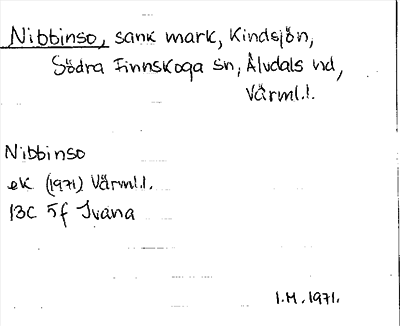 Nibbinso, sank mark, Kindsjön,
Södra Finnskoga sn, Älvdals hd,
Värml.l.
Nibbinso
ek (1971) Värml.l.
13C 5f Ivana
I.M. 1971.